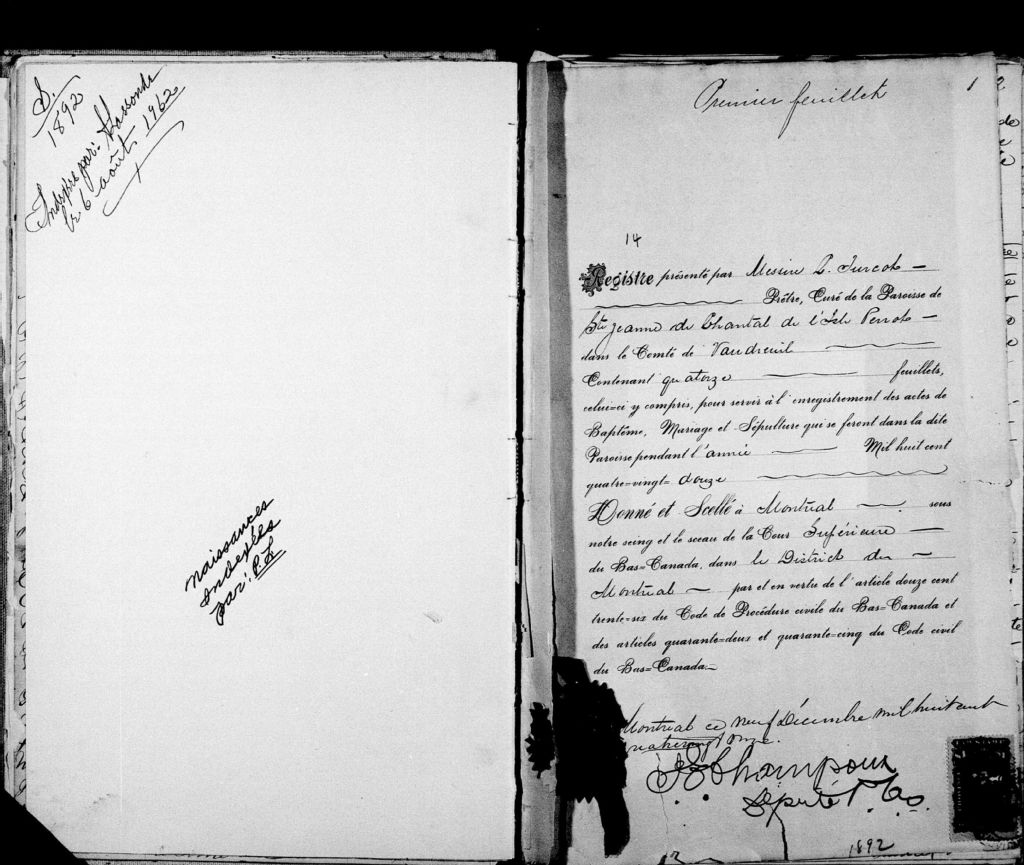 S.
1892
Indexé par: Lassonde
le 6 août 1962
naissances
indexées
par: P. L
Premier feuillet
1
14
Registre présenté par Messire L. Turcot
Prêtre, Curé de la Paroisse de
Ste Jeanne de Chantal de l'Isle Perrot
dans le Comté de Vaudreuil
Contenant quatorze feuillets,
celui=ci y compris, pour servir à l'enregistrement des actes de
Baptême, Mariage et Sépulture qui se feront dans la dite
Paroisse pendant l'année Mil huit cent
quatre=vingt= douze
Donné et Scellé à Montréal sous
notre seing et le sceau de la Cour Supérieure
du Bas=Canada, dans le District de
Montréal par et en vertu de l'article douze cent
trente=six du Code de Procédure civile du Bas=Canada et
des articles quarante=deux et quarante=cinq du Code civil
du Bas=Canada.
Montréal ce neuf Décembre mil huit cent
quatrevingt onze.
Champoux
Député
1892
2
de